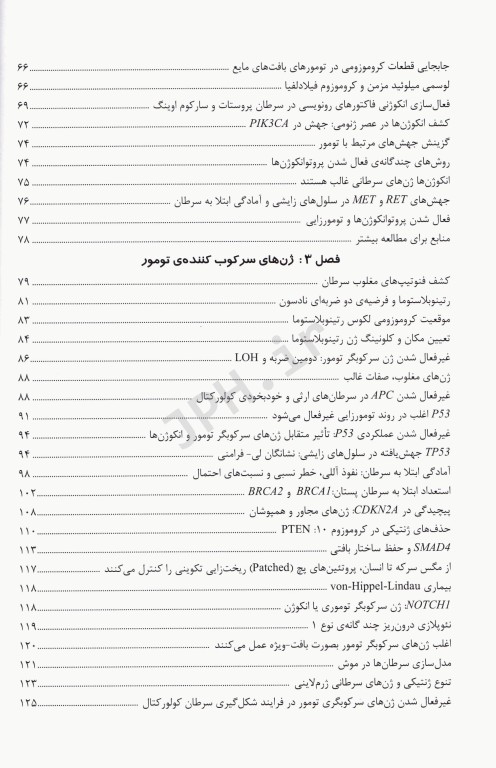 جابجایی قطعات کروموزومی در تومورهای بافت‌های مایع ........ ۶۶
لوسمی میلوئید مزمن و کروموزوم فیلادلفیا ........ ۶۶
فعال‌سازی انکوژنی فاکتورهای رونویسی در سرطان پروستات و سارکوم اوینگ ........ ۶۹
کشف انکوژن‌ها در عصر ژنومی: جهش در PIK3CA ........ ۷۲
گزینش جهش‌های مرتبط با تومور ........ ۷۴
روش‌های چندگانه‌ی فعال شدن پروتوانکوژن‌ها ........ ۷۴
انکوژن‌ها ژن‌های سرطانی غالب هستند ........ ۷۵
جهش‌های RET و MET در سلول‌های زایشی و آمادگی ابتلا به سرطان ........ ۷۶
فعال شدن پروتوانکوژن‌ها و تومورزایی ........ ۷۷
منابع برای مطالعه بیشتر ........ ۷۸
فصل ۳: ژن‌های سرکوب کننده‌ی تومور
کشف فنوتیپ‌های مغلوب سرطان ........ ۷۹
رتینوبلاستوما و فرضیه‌ی دو ضربه‌ای نادسون ........ ۸۱
موقعیت کروموزومی لکوس رتینوبلاستوما ........ ۸۳
تعیین مکان و کلونینگ ژن رتینوبلاستوما ........ ۸۴
غیرفعال شدن ژن سرکوبگر تومور: دومین ضربه و LOH ........ ۸۶
ژن‌های مغلوب، صفات غالب ........ ۸۸
غیرفعال شدن APC در سرطان‌های ارثی و خودبخودی کولورکتال ........ ۸۸
P53 اغلب در روند تومورزایی غیرفعال می‌شود ........ ۹۱
غیرفعال شدن عملکردی P53: تأثیر متقابل ژن‌های سرکوبگر تومور و انکوژن‌ها ........ ۹۴
TP53 جهش‌یافته در سلول‌های زایشی: نشانگان لی- فرامنی ........ ۹۴
آمادگی ابتلا به سرطان: نفوذ آللی، خطر نسبی و نسبت‌های احتمال ........ ۹۸
استعداد ابتلا به سرطان پستان: BRCA1 و BRCA2 ........ ۱۰۲
پیچیدگی در CDKN2A: ژن‌های مجاور و همپوشان ........ ۱۰۸
حذف‌های ژنتیکی در کروموزوم ۱۰: PTEN ........ ۱۱۰
SMAD4 و حفظ ساختار بافتی ........ ۱۱۳
از مگس سرکه تا انسان، پروتئین‌های پچ (Patched) ریخت‌زایی تکوینی را کنترل می‌کنند ........ ۱۱۷
بیماری von-Hippel-Lindau ........ ۱۱۸
NOTCH1: ژن سرکوبگر توموری یا انکوژن ........ ۱۱۸
نئوپلازی درون‌ریز چند گانه‌ی نوع ۱ ........ ۱۱۹
اغلب ژن‌های سرکوبگر تومور بصورت بافت-ویژه عمل می‌کنند ........ ۱۲۰
مدل‌سازی سرطان‌ها در موش ........ ۱۲۱
تنوع ژنتیکی و ژن‌های سرطانی ژرم‌لاینی ........ ۱۲۳
غیرفعال شدن ژن‌های سرکوبگری تومور در فرایند شکل‌گیری سرطان کولورکتال ........ ۱۲۵
JPH.ir